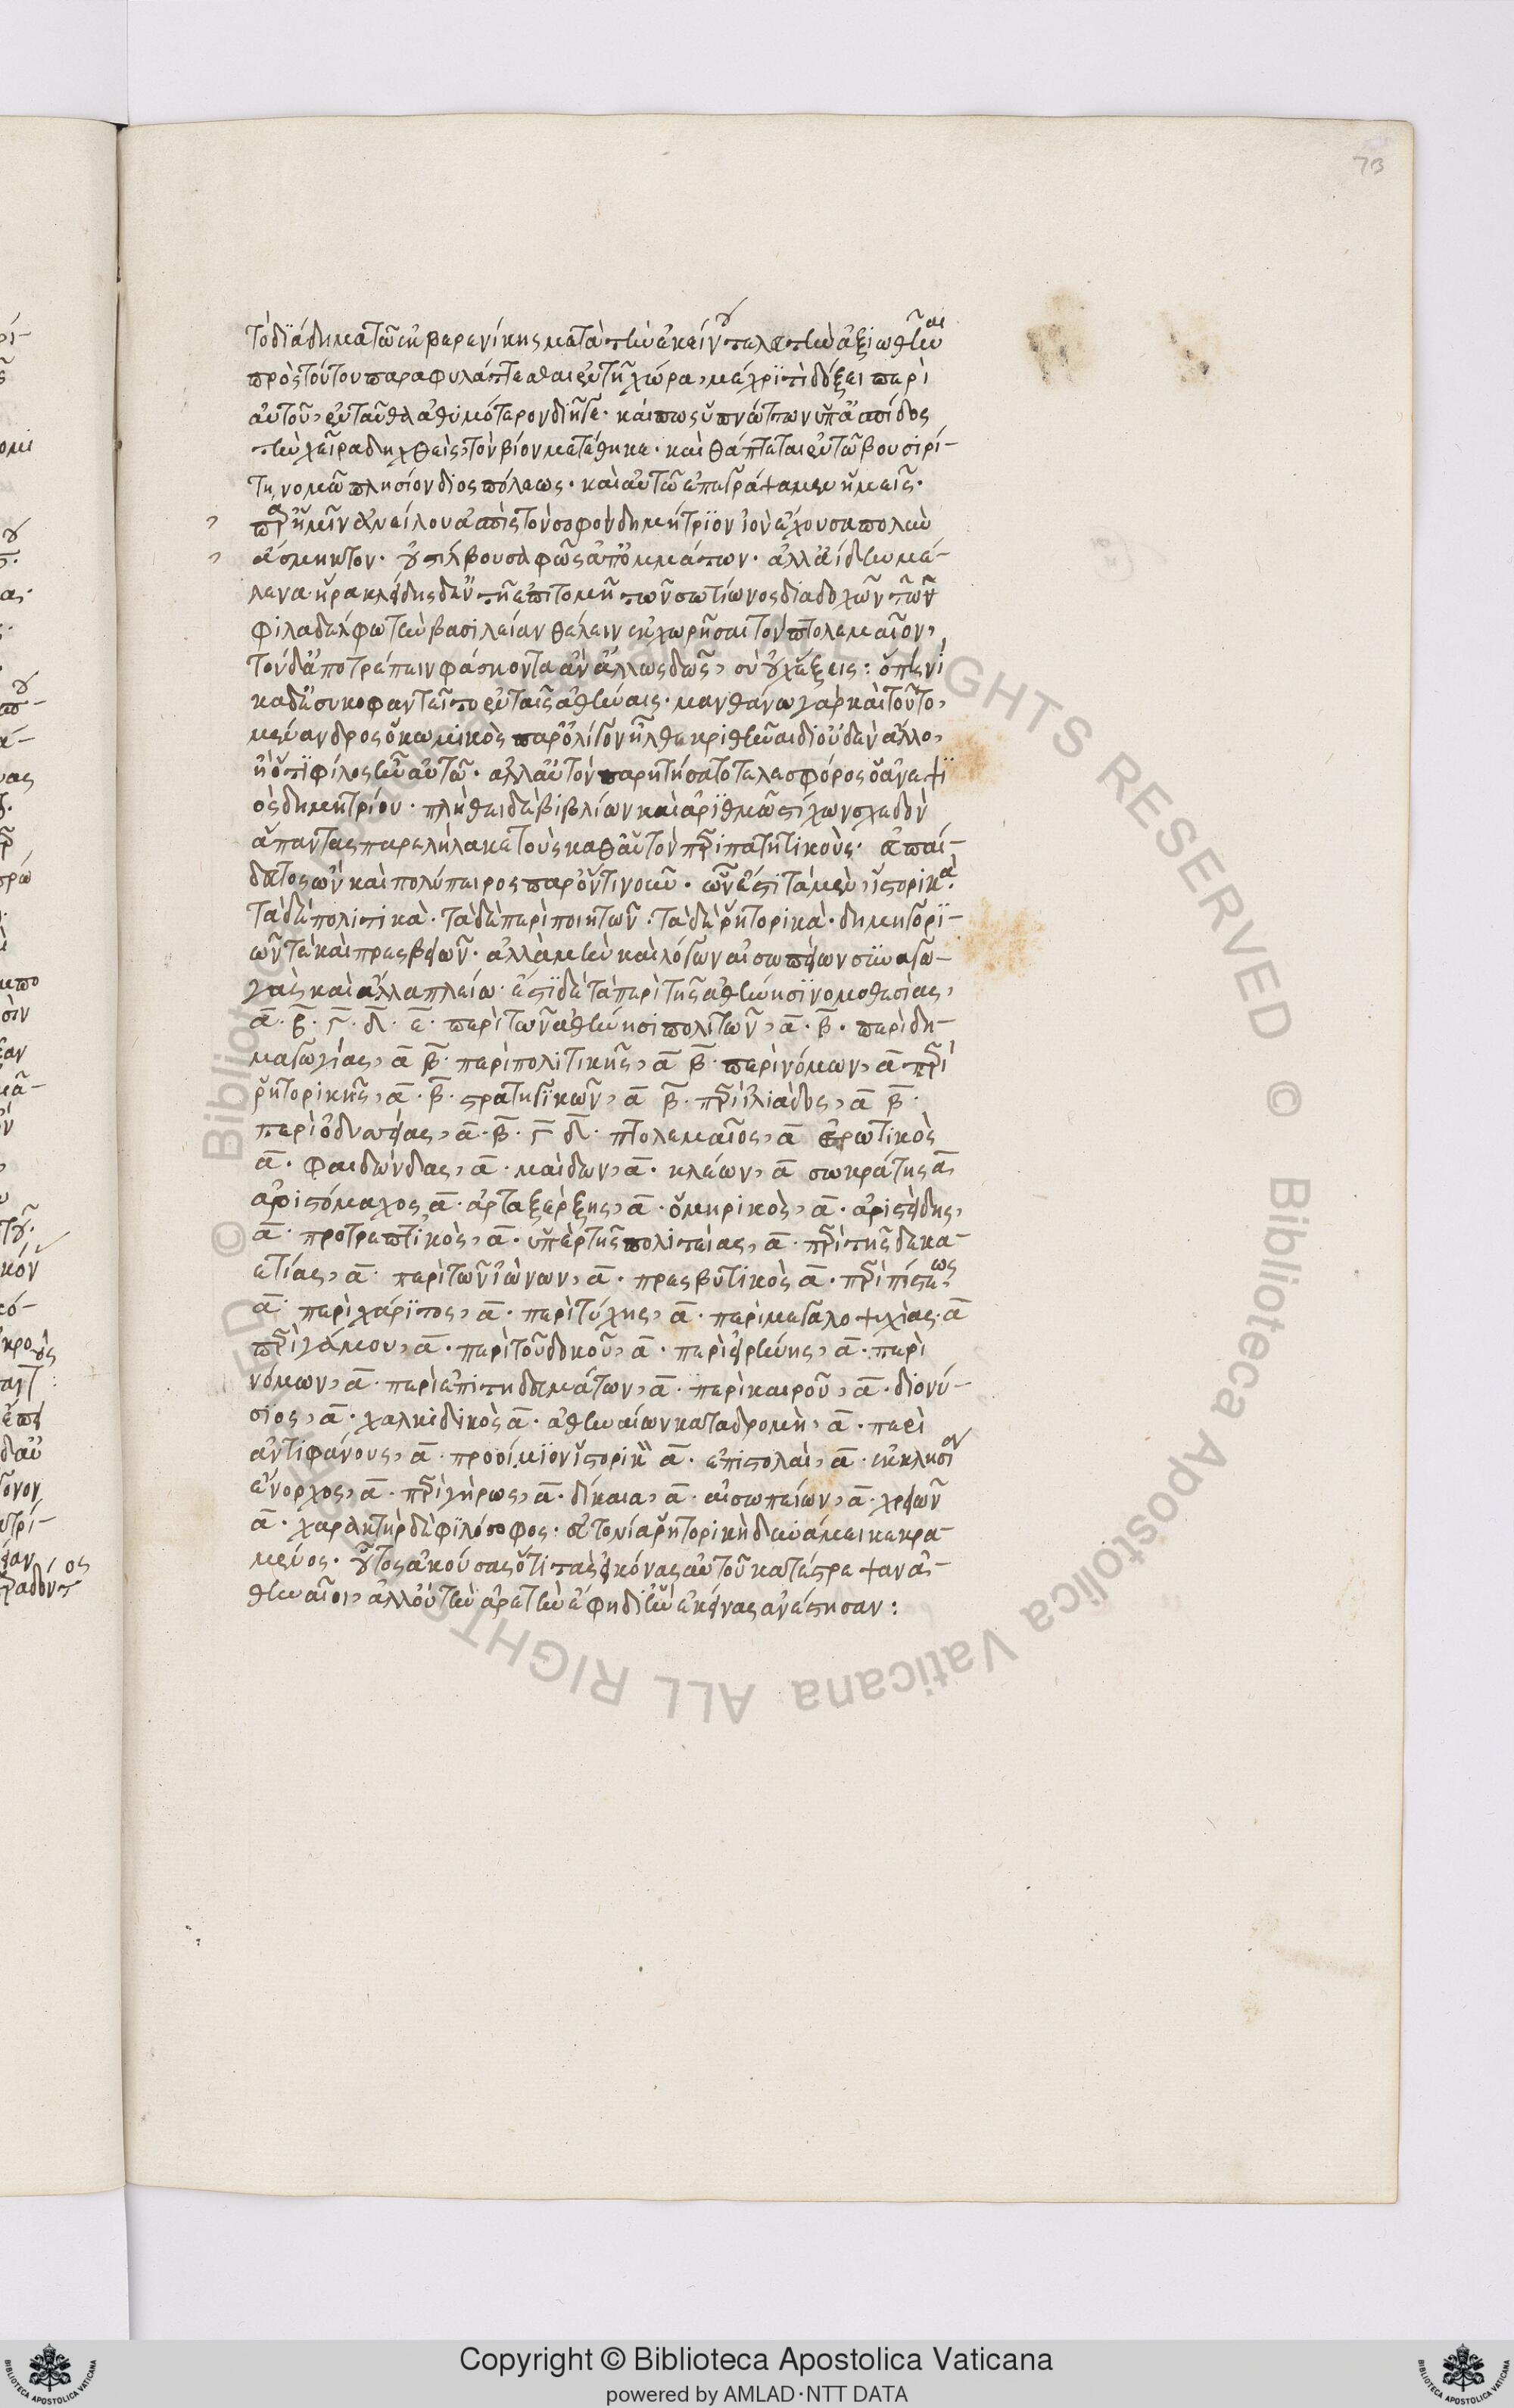 73
τὸ διάδημα τῶ ἐκ βερενίκης μετὰ τὴν ἐκείνου τελευτὴν ἀξιωθῆναι
πρὸς τούτου παραφυλάττεσθαι ἐν τῆ χώρα, μέχρι τὶ δόξει περὶ
αὐτοῦ, ἐνταῦθα ἀθυμότερον διῆγε· καί πως ὑπνώττων ὑπ' ἀσπίδος
τὴν χεῖρα δηχθεὶς, τὸν βίον μετέθηκε· καὶ θάπτεται ἐν τῶ βουσιρί-
τη νομῶ πλησίον διὸς πόλεως· καὶ αὐτῶ ἐπεγράψαμεν ἡμεῖς·
ἀνεῖλεν ἀσπὶς τὸν σοφὸν δημήτριον ἰὸν ἔχουσα πολὺν
ἄσμηκτον· οὐ στίλβουσα φῶς ἀπ' ὀμμάτων· ἀλλ' ἀίδην μέ-
λανα ἡρακλείδης δ' ἐν τῆ ἐπιτομῆ τῶν σωτίωνος διαδοχῶν τῶ
φιλαδέλφω τὴν βασιλείαν θέλειν ἐκχωρῆσαι τὸν πτολεμαῖον,
τὸν δ' ἀποτρέπειν φάσκοντα ἂν ἄλλω δῶς, σὺ οὐχ ἕξεις: ὁπηνί
κα δ' ἐσυκοφαντεῖτο ἐν ταῖς ἀθήναις· μανθάνω γὰρ καὶ τοῦτο,
μένανδρος ὁ κωμικὸς παρ' ὀλίγον ἦλθε κριθῆναι δι' οὐδὲν ἄλλο,
ἢ ὅτι φίλος ἦν αὐτῶ· ἀλλ' αὐτὸν παρητήσατο τελεσφόρος ὁ ἀνεψι
ὸς δημητρίου· πλήθει δὲ βιβλίων καὶ ἀριθμῶ στίχων σχεδὸν
ἅπαντας παρελήλακε τοὺς καθ' αὑτὸν περιπατητικοὺς· εὐπαί-
δευτος ὢν καὶ πολύπειρος παρ' ὁντινοῦν· ὧν ἐστι τὰ μὲν, ἱστορικὰ·
τὰ δὲ πολιτικὰ· τὰ δὲ περὶ ποιητῶν· τὰ δὲ ῥητορικὰ· δημηγορι-
ῶν τε καὶ πρεσβειῶν· ἀλλὰ μὴν καὶ λόγων αἰσωπείων συναγω-
γαὶ καὶ ἄλλα πλείω· ἔστι δὲ τὰ περὶ τῆς ἀθήνησι νομοθεσίας,
α· β· γ· δ· ε· περὶ τῶν ἀθήνησι πολιτῶν, α· β· περὶ δη-
μαγωγίας, α β· περὶ πολιτικῆς, α β· περὶ νόμων, α περὶ
ῥητορικῆς, α· β· στρατηγικῶν, α β· περὶ ἰλιάδος, α β·
περὶ ὀδυσσείας, α· β· γ δ· πτολεμαῖος, α ἐρωτικὸς
α· φαιδώνδας, α· μαίδων, α· κλέων, α σωκράτης α
ἀριστόμαχος α· ἀρταξέρξης, α· ὁμηρικὸς, α· ἀριστείδης,
α· προτρεπτικὸς, α· ὑπὲρ τῆς πολιτείας, α· περὶ τῆς δεκα-
ετίας, α· περὶ τῶν ἰώνων, α· πρεσβυτικὸς α· περὶ πίστεως
α· περὶ χάριτος, α· περὶ τύχης, α· περὶ μεγαλοψυχίας· α
περὶ γάμου, α· περὶ τοῦ δοκοῦ, α· περὶ εἰρήνης, α· περὶ
νόμων, α· περὶ ἐπιτηδευμάτων, α· περὶ καιροῦ, α· διονύ-
σιος, α· χαλκιδικὸς α· ἀθηναίων καταδρομὴ, α· περὶ
ἀντιφάνους, α· προοίμιον ἱστορικὸν α· ἐπιστολαὶ, α· ἐκκλησία
ἔνορκος, α· περὶ γήρως, α· δίκαια, α· αἰσωπείων, α· χρειῶν
α· χαρακτὴρ δὲ φιλόσοφος· εὐτονία ῥητορικῆ δυνάμει κεκρα-
μένος· οὗτος ἀκούσας ὅτι τὰς εἰκόνας αὐτοῦ κατέστρεψαν ἀ-
θηναῖοι, ἀλλ' οὐ τὴν ἀρετὴν ἔφη δι' ἣν ἐκείνας ἀνέστησαν:
© Biblioteca Apostolica Vaticana ALL RIGHTS RESERVED
Copyright © Biblioteca Apostolica Vaticana
powered by AMLAD·NTT DATA